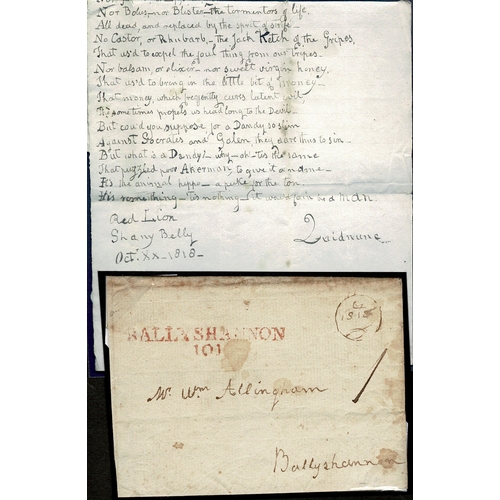 Nor Bolus, nor Blister – the tormentors of life,
All dead, and replaced by the sprit of
No Castor, or Rhubarb – the Jack Ketch of the Gripes,
That us'd to expel the foul thing from our tripes.
Nor balsam, or elixir – nor sweet virgin honey,
That us'd to bring in the little bit of money –
That money, which freqently cures latent
Tho' sometimes propels us headlong to the Devil –
But could you suppose for a Dandy so slim
Against Socrates and Galen they dare thus to sin –
But what is a Dandy? why – oh – tis the same
That puzzled poor Akerman to give it a name –
It's the animal hippo – a puke for the ton,
It's something – tis nothing – it would fain be a man.
Red Lion
Shany Belly
Octr. XX – 1818 –
Quidnunc
BALLYSHANNON
101
1818
1
Mr. Wm. Allingham
Ballyshannon